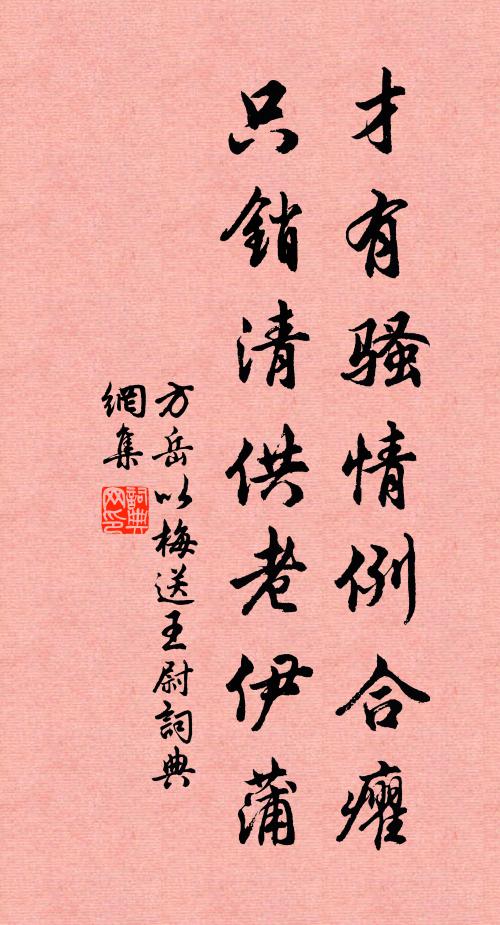 才有骚情例合癯
只銷清供老伊蒲
方岳以梅送王尉詞典
網集
詞典
网印